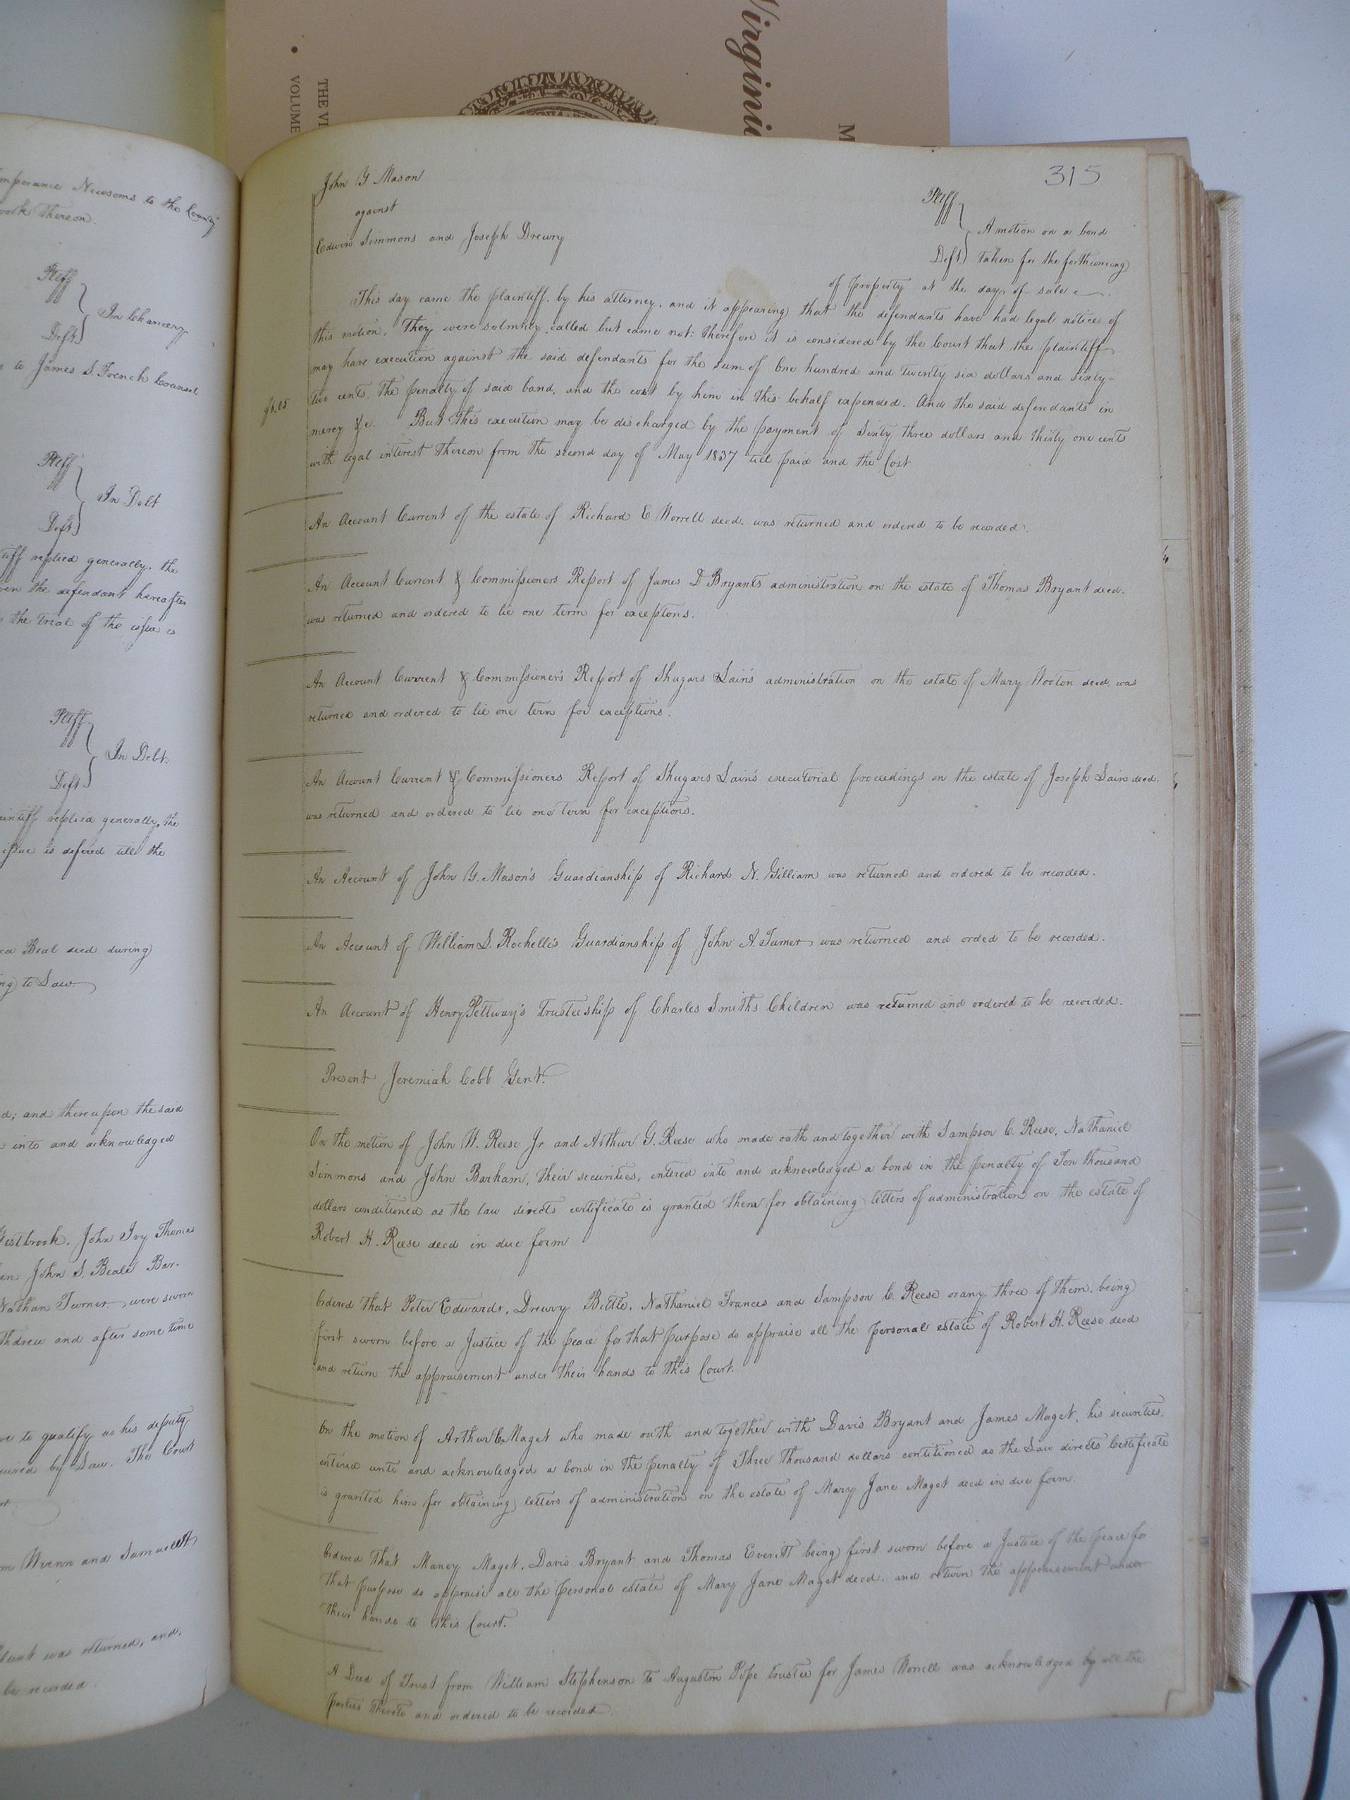 Virgini
M
THE VI
VOLUME
mperance Newsoms to the County
ook thereon.
Pltff
In Chancery
Deft
to James S. French Counsel
Pltff
In Debt
Deft
tiff replied generally, the
the defendant hereafter
the trial of the issue is
Pltff
In Debt.
Deft
aintiff replied generally, the
issue is defered till the
Beal deed during
ng to Law
d; and thereupon the said
into and acknowledged
estbrook, John Ivy Thomas
John S. Beale Bar-
Nathan Turner, were sworn
thdrew and after some time
to qualify as his deputy
uired by Law. The Court
Wrenn and Samuel
was returned, and,
be recorded.
315
John G Mason Pltff
against A motion on a bond
Edwin Simmons and Joseph Drewry Deft taken for the forthcoming
of property at the day of sale
This day came the plaintiff by his attorney, and it appearing that the defendants have had legal notice of
this motion, They were solmnly called but came not: therefore it is considered by the Court that the plaintiff
may have execution against the said defendants for the sum of One hundred and twenty six dollars and sixty-
two cents the penalty of said bond, and the cost by him in this behalf expended. And the said defendants in
mercy &c. But this execution may be discharged by the payment of Sixty three dollars and thirty one cents
with legal interest thereon from the second day of May 1837 till paid and the Cost
An Account Current of the estate of Richard E Worrell deed was returned and ordered to be recorded.
An Account Current & Commissioners Report of James D Bryants administration on the estate of Thomas Bryant deed.
was returned and ordered to lie one term for exceptions.
An Account Current & Commissioner's Report of Shugars Lain's administration on the estate of Mary Wooton deed was
returned and ordered to lie one term for exceptions.
An Account Current & Commissioners Report of Shugars Lain's executorial proceedings on the estate of Joseph Lain deed.
was returned and ordered to lie one term for exceptions.
An Account of John G. Mason's Guardianship of Richard N. Gilliam was returned and ordered to be recorded.
An Account of William S. Rochelle's Guardianship of John A. Turner was returned and orded to be recorded.
An Account of Henry Pettway's Trusteeship of Charles Smith's Children was returned and ordered to be recorded.
Present Jeremiah Cobb Gent.
On the motion of John W. Reese Jr and Arthur G. Reese who made oath and together with Sampson C. Reese, Nathaniel
Simmons and John Barham, their securities, entered into and acknowledged a bond in the penalty of Ten thousand
dollars conditioned as the law directs certificate is granted them for obtaining letters of administration on the estate of
Robert H. Reese deed in due form
Ordered that Peter Edwards, Drewry Bittle, Nathaniel Frances and Sampson C. Reese or any three of them, being
first sworn before a Justice of the peace for that purpose do appraise all the personal estate of Robert H. Reese deed
and return the appraisement under their hands to this Court.
On the motion of Arthur C. Maget who made oath and together with Davis Bryant and James Maget, his securities,
entered unto and acknowledged a bond in the penalty of Three Thousand dollars contitioned as the Law directs Certificate
is granted him for obtaining letters of administration on the estate of Mary Jane Maget deed in due form.
Ordered that Maney Maget, Davis Bryant and Thomas Everitt being first sworn before a Justice of the peace fo
that purpose do appraise all the personal estate of Mary Jane Maget deed. and return the appraisement under
their hands to this Court.
A Deed of Trust from William Stephenson to Augustin Pope trustee for James Worrell was acknowledged by all the
parties thereto and ordered to be recorded